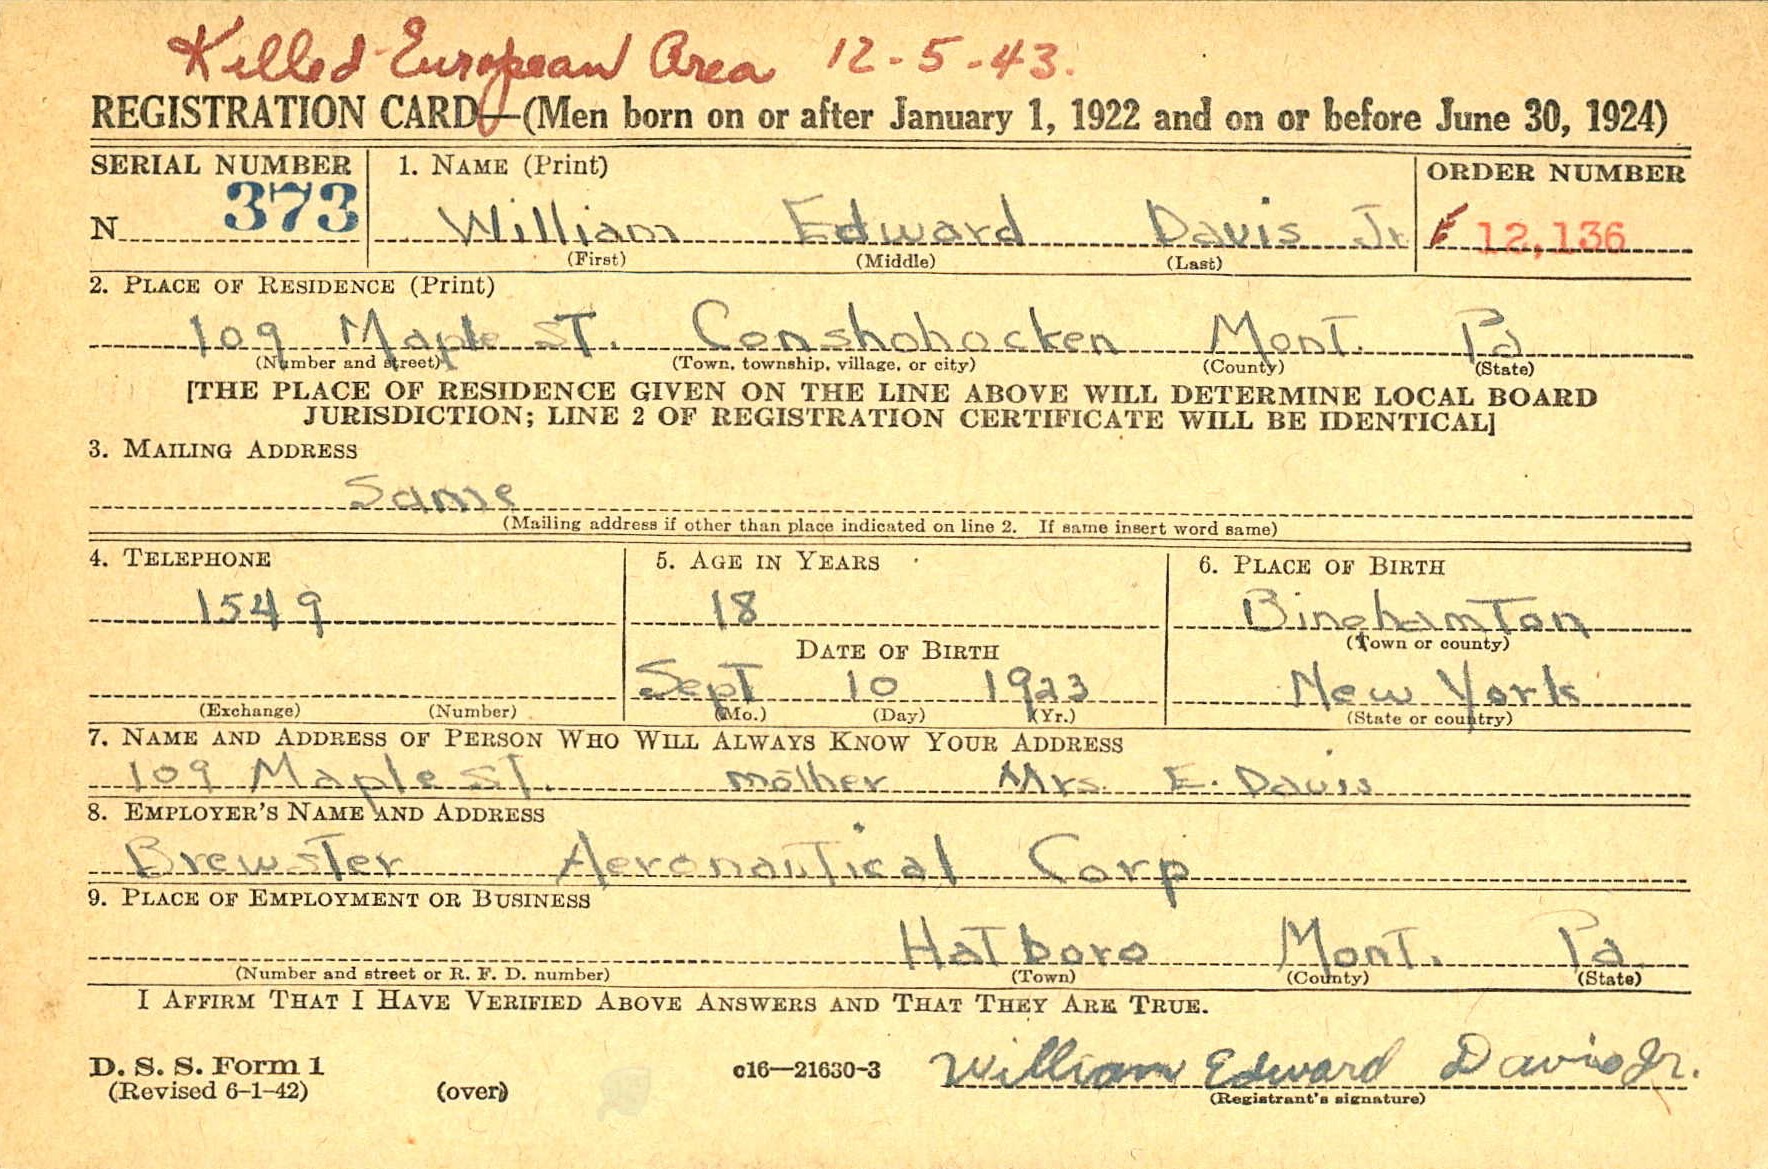 Killed European Area 12-5-43.
REGISTRATION CARD—(Men born on or after January 1, 1922 and on or before June 30, 1924)
SERIAL NUMBER 1. NAME (Print) ORDER NUMBER
N 373 William Edward Davis Jr 12,136
(First) (Middle) (Last)
2. PLACE OF RESIDENCE (Print)
109 Maple ST. Conshohocken Mont. Pa
(Number and street) (Town, township, village, or city) (County) (State)
[THE PLACE OF RESIDENCE GIVEN ON THE LINE ABOVE WILL DETERMINE LOCAL BOARD
JURISDICTION; LINE 2 OF REGISTRATION CERTIFICATE WILL BE IDENTICAL]
3. MAILING ADDRESS
Same
(Mailing address if other than place indicated on line 2. If same insert word same)
4. TELEPHONE 5. AGE IN YEARS 6. PLACE OF BIRTH
1549 18 Binghamton
(Town or county)
DATE OF BIRTH
Sept 10 1923 New York
(Exchange) (Number) (Mo.) (Day) (Yr.) (State or country)
7. NAME AND ADDRESS OF PERSON WHO WILL ALWAYS KNOW YOUR ADDRESS
109 Maple ST. mother Mrs. E. Davis
8. EMPLOYER'S NAME AND ADDRESS
Brewster Aeronautical Corp
9. PLACE OF EMPLOYMENT OR BUSINESS
Hatboro Mont. Pa.
(Number and street or R. F. D. number) (Town) (County) (State)
I AFFIRM THAT I HAVE VERIFIED ABOVE ANSWERS AND THAT THEY ARE TRUE.
D. S. S. Form 1
(Revised 6-1-42) (over) c16—21630-3 William Edward Davis Jr.
(Registrant's signature)